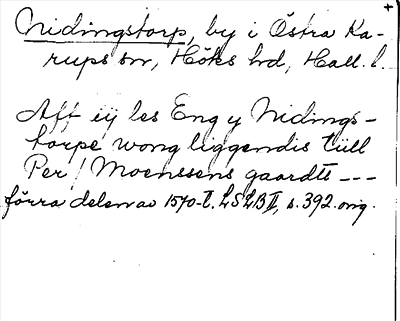 Nidingstorp, by i Östra Ka-
rups sn, Höks hd, Hall. l.
Aff iij les Eng y Nidings-
torpe wong liggendis till
Per Moenssens gaardtt ---
förra delen av 1570-t. LSLB II, s. 392. orig.